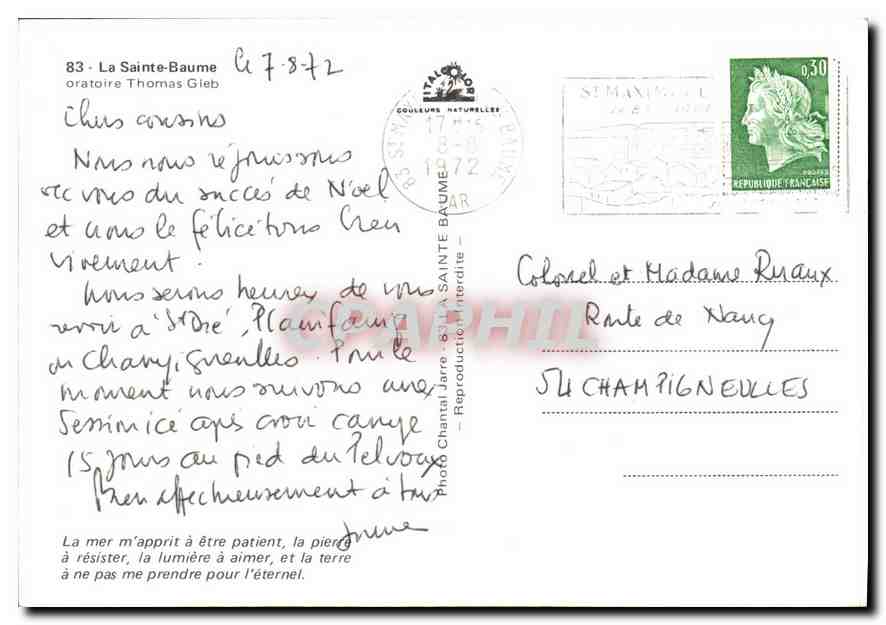 83 - La Sainte-Baume
oratoire Thomas Gleb
le 7-8-72
Chers cousins
Nous nous réjouissons
avec vous du succès de Noel
et nous le félicitons bien
vivement.
Nous serons heureux de vous
revoir à St Dié, Plainfaing
ou Champigneulles. Pour le
moment nous suivons une
Session ici après avoir campé
15 jours au pied du Pelvoux
Bien affectueusement à tous
La mer m'apprit à être patient, la pierre
à résister, la lumière à aimer, et la terre
à ne pas me prendre pour l'éternel.
ITALCOLOR
COULEURS NATURELLES
Photo Chantal Jarre - 83 LA SAINTE BAUME
- Reproduction interdite -
CPAPHIL
83 ST MAX BAUME
17H15
8-8
1972
VAR
ST MAXIMIN
0,30
REPUBLIQUE FRANÇAISE
Colonel et Madame Ruaux
Route de Nancy
54 CHAMPIGNEULLES